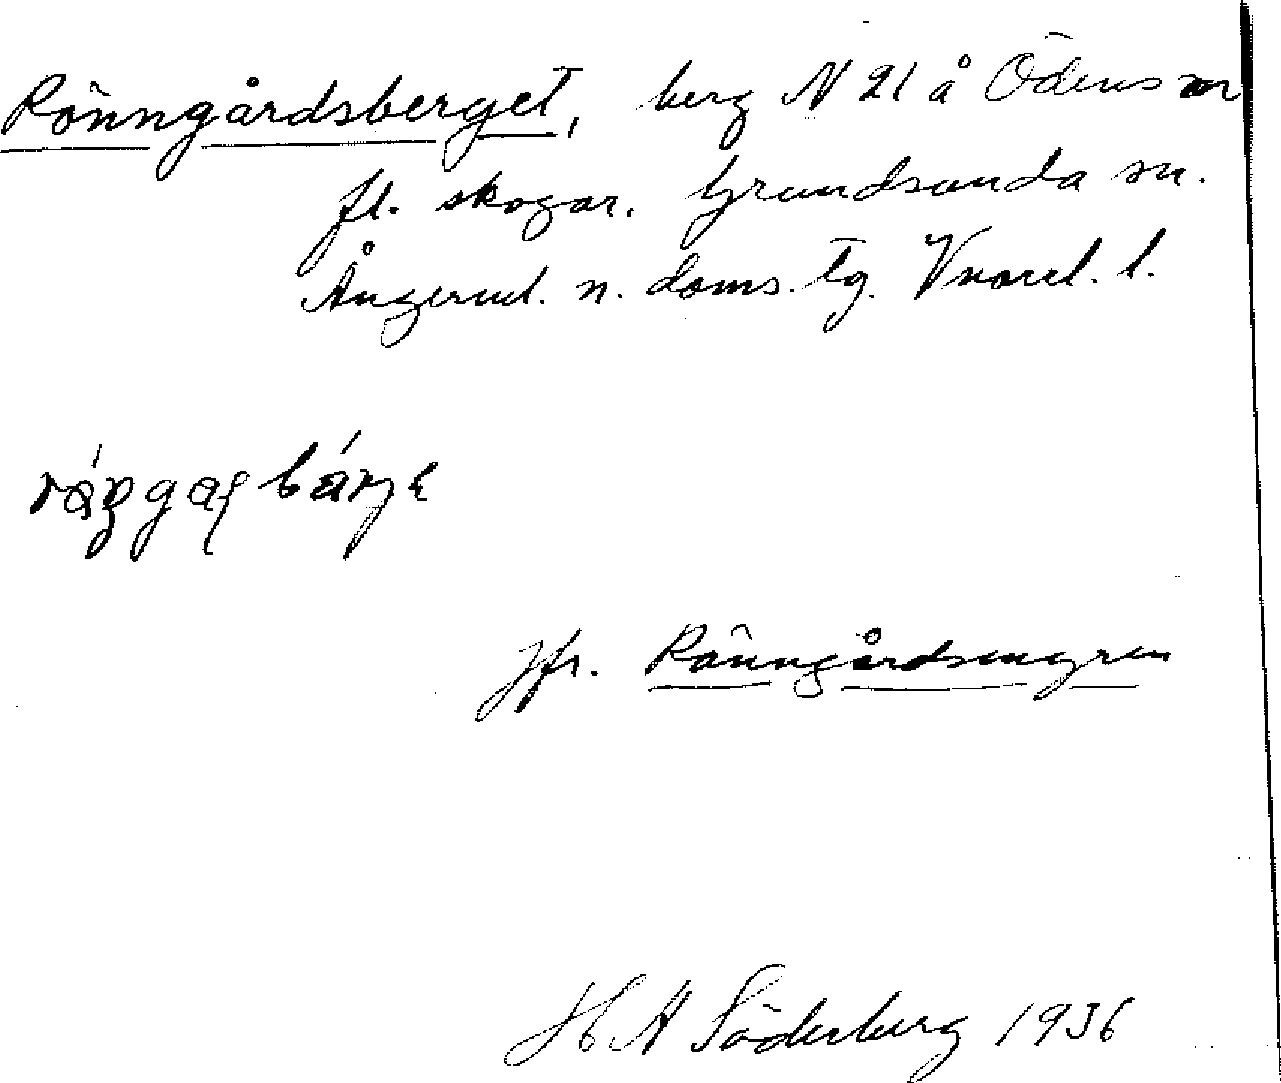 Rönngårdsberget, berg N 21 å Ödens m
fl. skogar. Grundsunda sn.
Ångerml. n. doms. tg. Vnorrl. l.
jfr. Rönngårdsmyren
H A Söderberg 1936